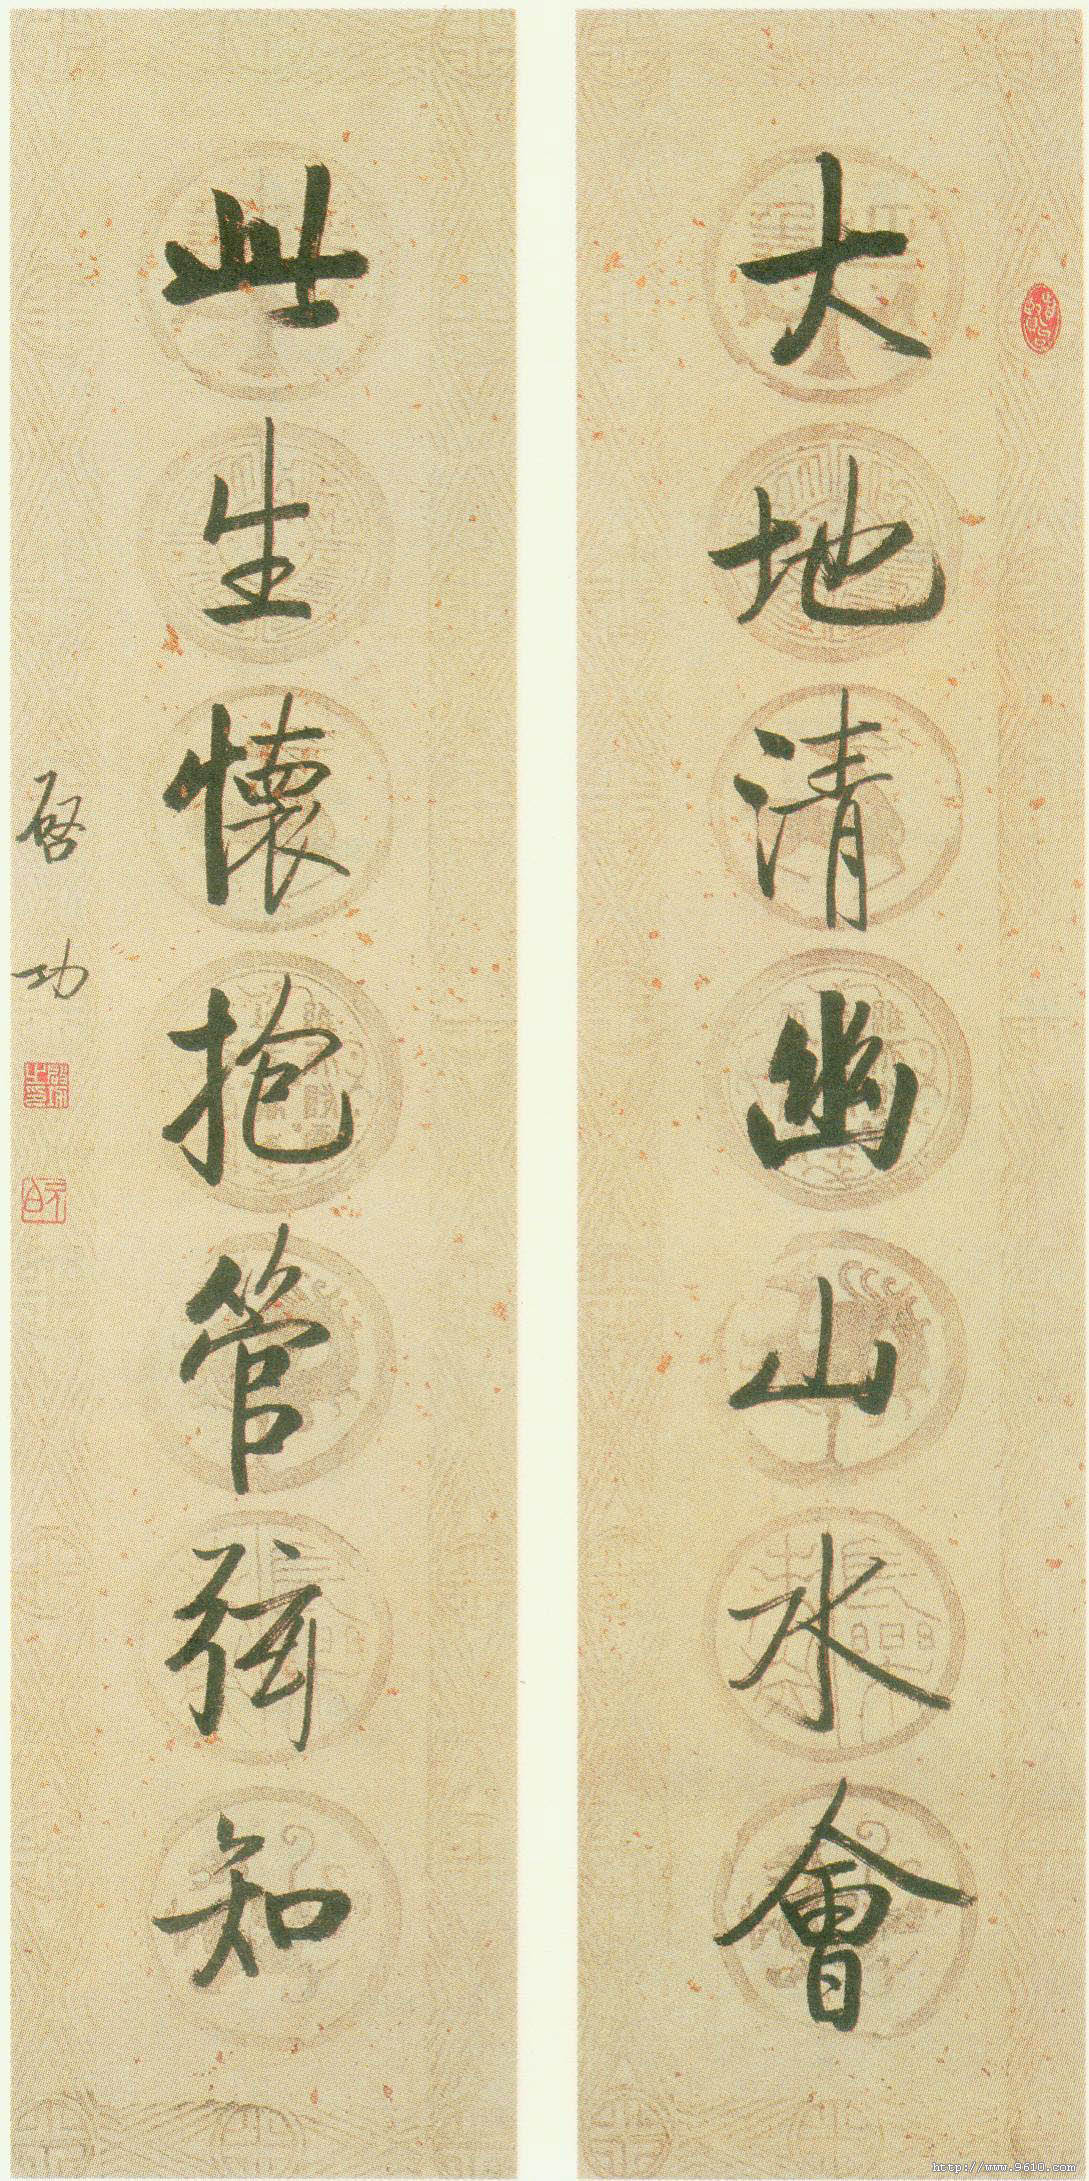 大地清幽山水會
此生懷抱管弦知
啓功
http://www.9610.com